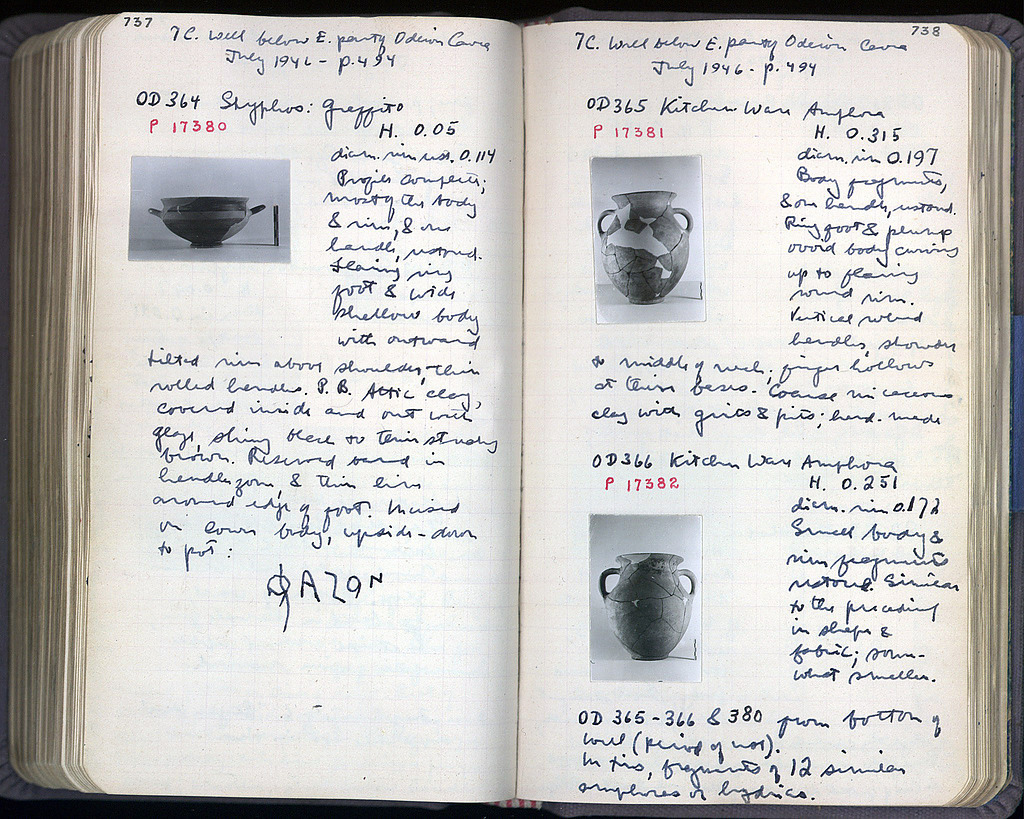 737
7C. Well below E. party Odeion Cavea
July 1946 - p. 494
OD 364 Skyphos: graffito
P 17380
H. 0.05
diam. rim rest. 0.114
Profile complete;
most of the body
& rim, & one
handle, restored.
Flaring ring
foot & wide
shallow body
with outward
tilted rim above shoulder; thin
rolled handles. P. B. Attic clay,
covered inside and out with
glaze, shiny black to thin streaky
brown. Reserved band in
handle zone, & thin line
around edge of foot. Incised
on lower body, upside-down
to pot:
ΦAZON
738
7C. Well below E. party Odeion Cavea
July 1946 - p. 494
OD365 Kitchen Ware Amphora
P 17381
H. 0.315
diam. rim 0.197
Body fragments,
& one handle, restored.
Ring foot & plump
ovoid body curving
up to flaring
round rim.
Vertical rolled
handles, shoulder
to middle of neck; finger hollows
at their bases. Coarse micaceous
clay with grits & pits; hand-made
OD366 Kitchen Ware Amphora
P 17382
H. 0.251
diam. rim 0.172
Small body &
rim fragments
restored. Similar
to the preceding
in shape &
fabric; some-
what smaller.
OD 365-366 & 380 from bottom of
well (period of use).
In tins, fragments of 12 similar
amphoras or hydrias.